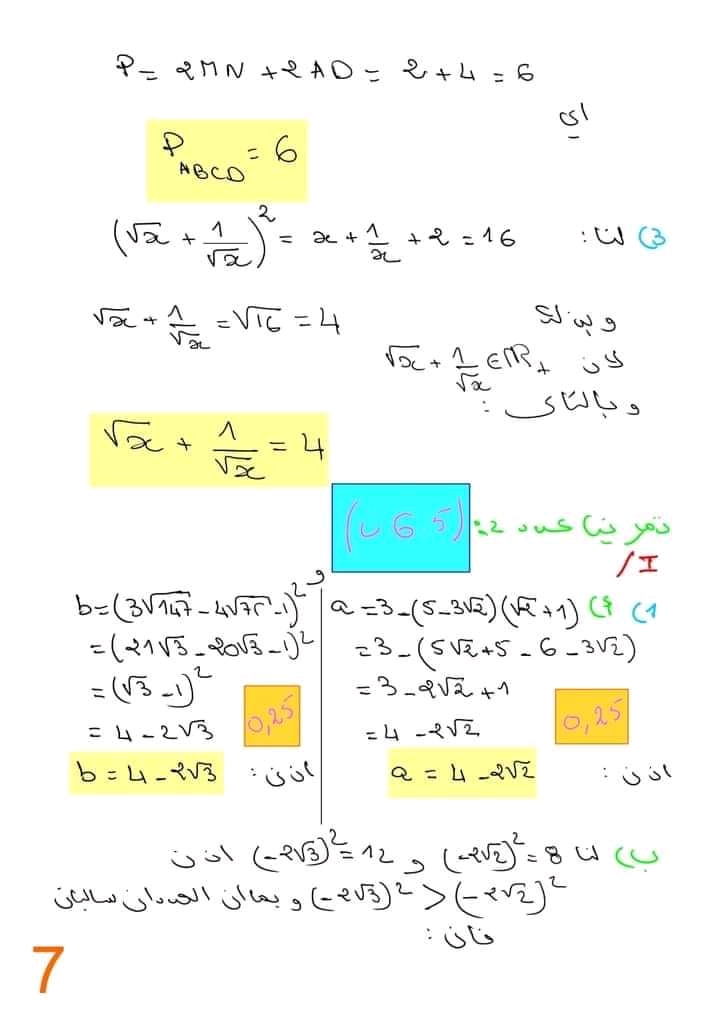 P = 2MN + 2AD = 2 + 4 = 6
اي
P_ABCD = 6
3) لنا: (√x + 1/√x)² = x + 1/x + 2 = 16
√x + 1/√x = √16 = 4
لان √x + 1/√x ∈ ℝ₊
و بالتالي :
√x + 1/√x = 4
تمرين عدد 2: (5 6 ن)
I/
1) أ) a = 3 - (5 - 3√2)(√2 + 1)
= 3 - (5√2 + 5 - 6 - 3√2)
= 3 - 2√2 + 1
= 4 - 2√2
0,25
اذن : a = 4 - 2√2
و
b = (3√147 - 4√75 - 1)²
= (21√3 - 20√3 - 1)²
= (√3 - 1)²
= 4 - 2√3
0,25
اذن : b = 4 - 2√3
ب) لنا (-2√2)² = 8 و (-2√3)² = 12 اذن
(-2√3)² > (-2√2)² و بما ان العددان سالبان
فان :
7